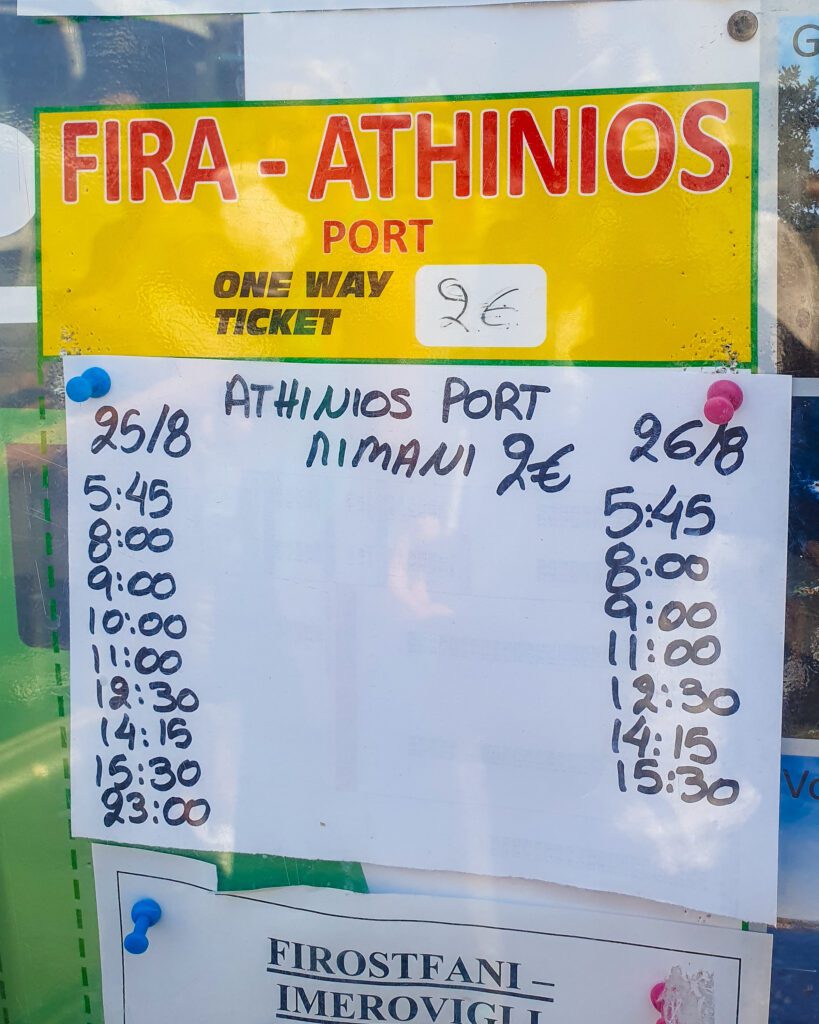 FIRA - ATHINIOS
PORT
ONE WAY
TICKET
2€
ATHINIOS PORT
ΛIMANI 2€
25/8
5:45
8:00
9:00
10:00
11:00
12:30
14:15
15:30
23:00
26/8
5:45
8:00
9:00
11:00
12:30
14:15
15:30
FIROSTFANI –
IMEROVIGLI